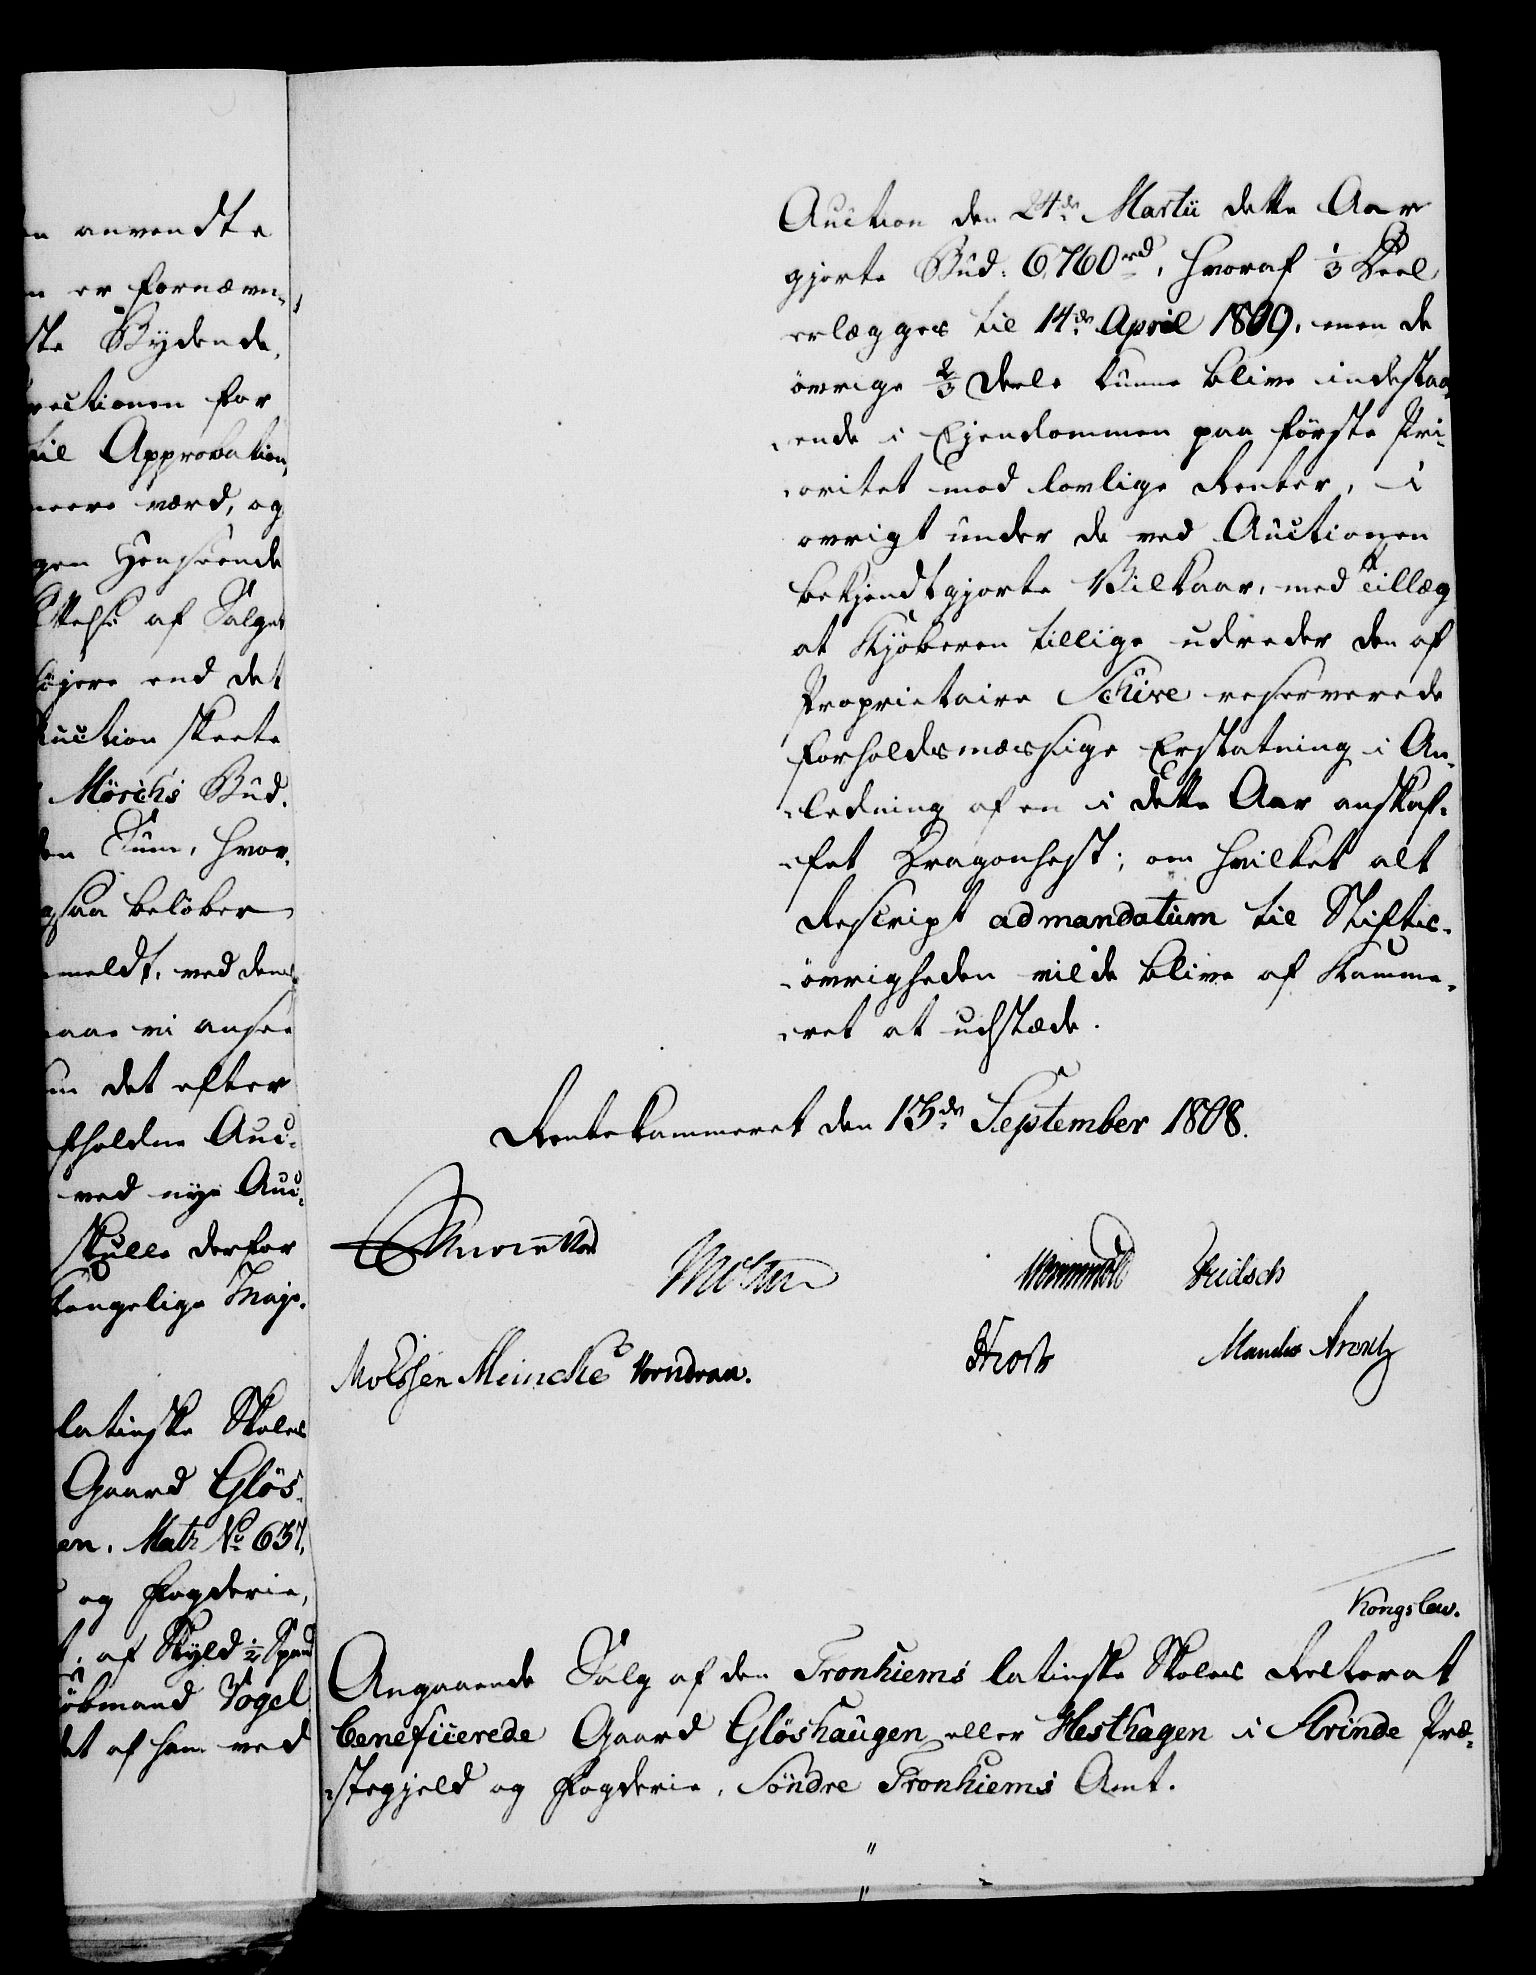 n anvendte
n er fornævn-
ste Bydende,
uctionen for
til Approbation,
meere værd, og
gen Henseende
af Salget
höjere end det
Auction skeete
Mörchs Bud.
den Sum, hvor-
ogsaa belöber
meldt, ved den
maae vi ansee
det efter
fholdne Auc-
ved nye Auc-
skulle derfor
kongelige Maje-
latinske Skoles
Gaard Glös-
en, Matr No 637,
og Fogderie,
af Skyld 1/2 Spand
Kjöbmand Vogel
det af ham ved
Auction den 24de Martii dette Aar
gjorte Bud: 6760 rd, hvoraf 1/3 Deel
erlægges til 14de April 1809, men de
övrige 2/3 Deele kunne blive indestaa-
ende i Ejendommen paa förste Pri-
oritet mod lovlige Renter, i
övrigt under de ved Auctionen
bekjendtgjorte Vilkaar, med Tillæg
at Kjöberen tillige udreder den af
Proprietaire Schive reserverede
forholdsmæssige Erstatning i An-
ledning af en i dette Aar anskaf-
fet Dragonhest; om hvilket alt
Rescript ad mandatum til Stifts-
övrigheden vilde blive af Kamme-
ret at udstæde.
Rentekammeret den 13de September 1808.
Wormskiold Fridsch
Meincke Vorndran.
Kongslew.
Angaaende Salg af den Tronhiems latinske Skoles Rectorat
beneficerede Gaard Glöshaugen eller Hesthagen i Strinde Præ-
stegjeld og Fogderie, Söndre Tronhiems Amt.